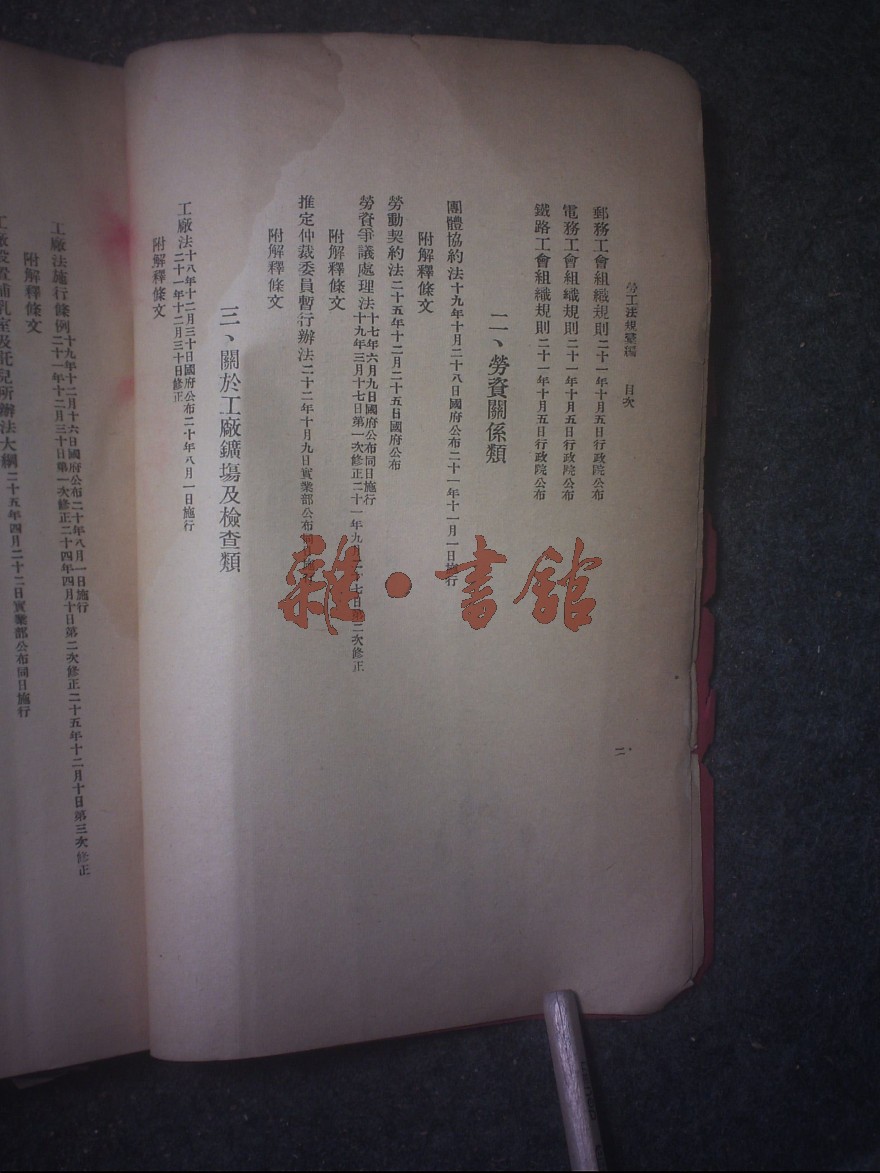 勞工法規彙編 目次
二
郵務工會組織規則二十一年十月五日行政院公布
電務工會組織規則二十一年十月五日行政院公布
鐵路工會組織規則二十一年十月五日行政院公布
二、勞資關係類
團體協約法十九年十月二十八日國府公布二十一年十一月一日施行
附解釋條文
勞動契約法二十五年十二月二十五日國府公布
勞資爭議處理法十七年六月九日國府公布同日施行
十九年三月十七日第一次修正二十一年九月二十七日第二次修正
附解釋條文
推定仲裁委員暫行辦法二十二年十月九日實業部公布
附解釋條文
三、關於工廠鑛場及檢查類
工廠法十八年十二月三十日國府公布二十年八月一日施行
二十一年十二月三十日修正
附解釋條文
工廠法施行條例十九年十二月十六日國府公布二十年八月一日施行
二十一年十二月三十日第一次修正二十四年四月十日第二次修正二十五年十二月十日第三次修正
附解釋條文
工廠設置哺乳室及托兒所辦法大綱二十五年四月二十二日實業部公布同日施行
雜·書館